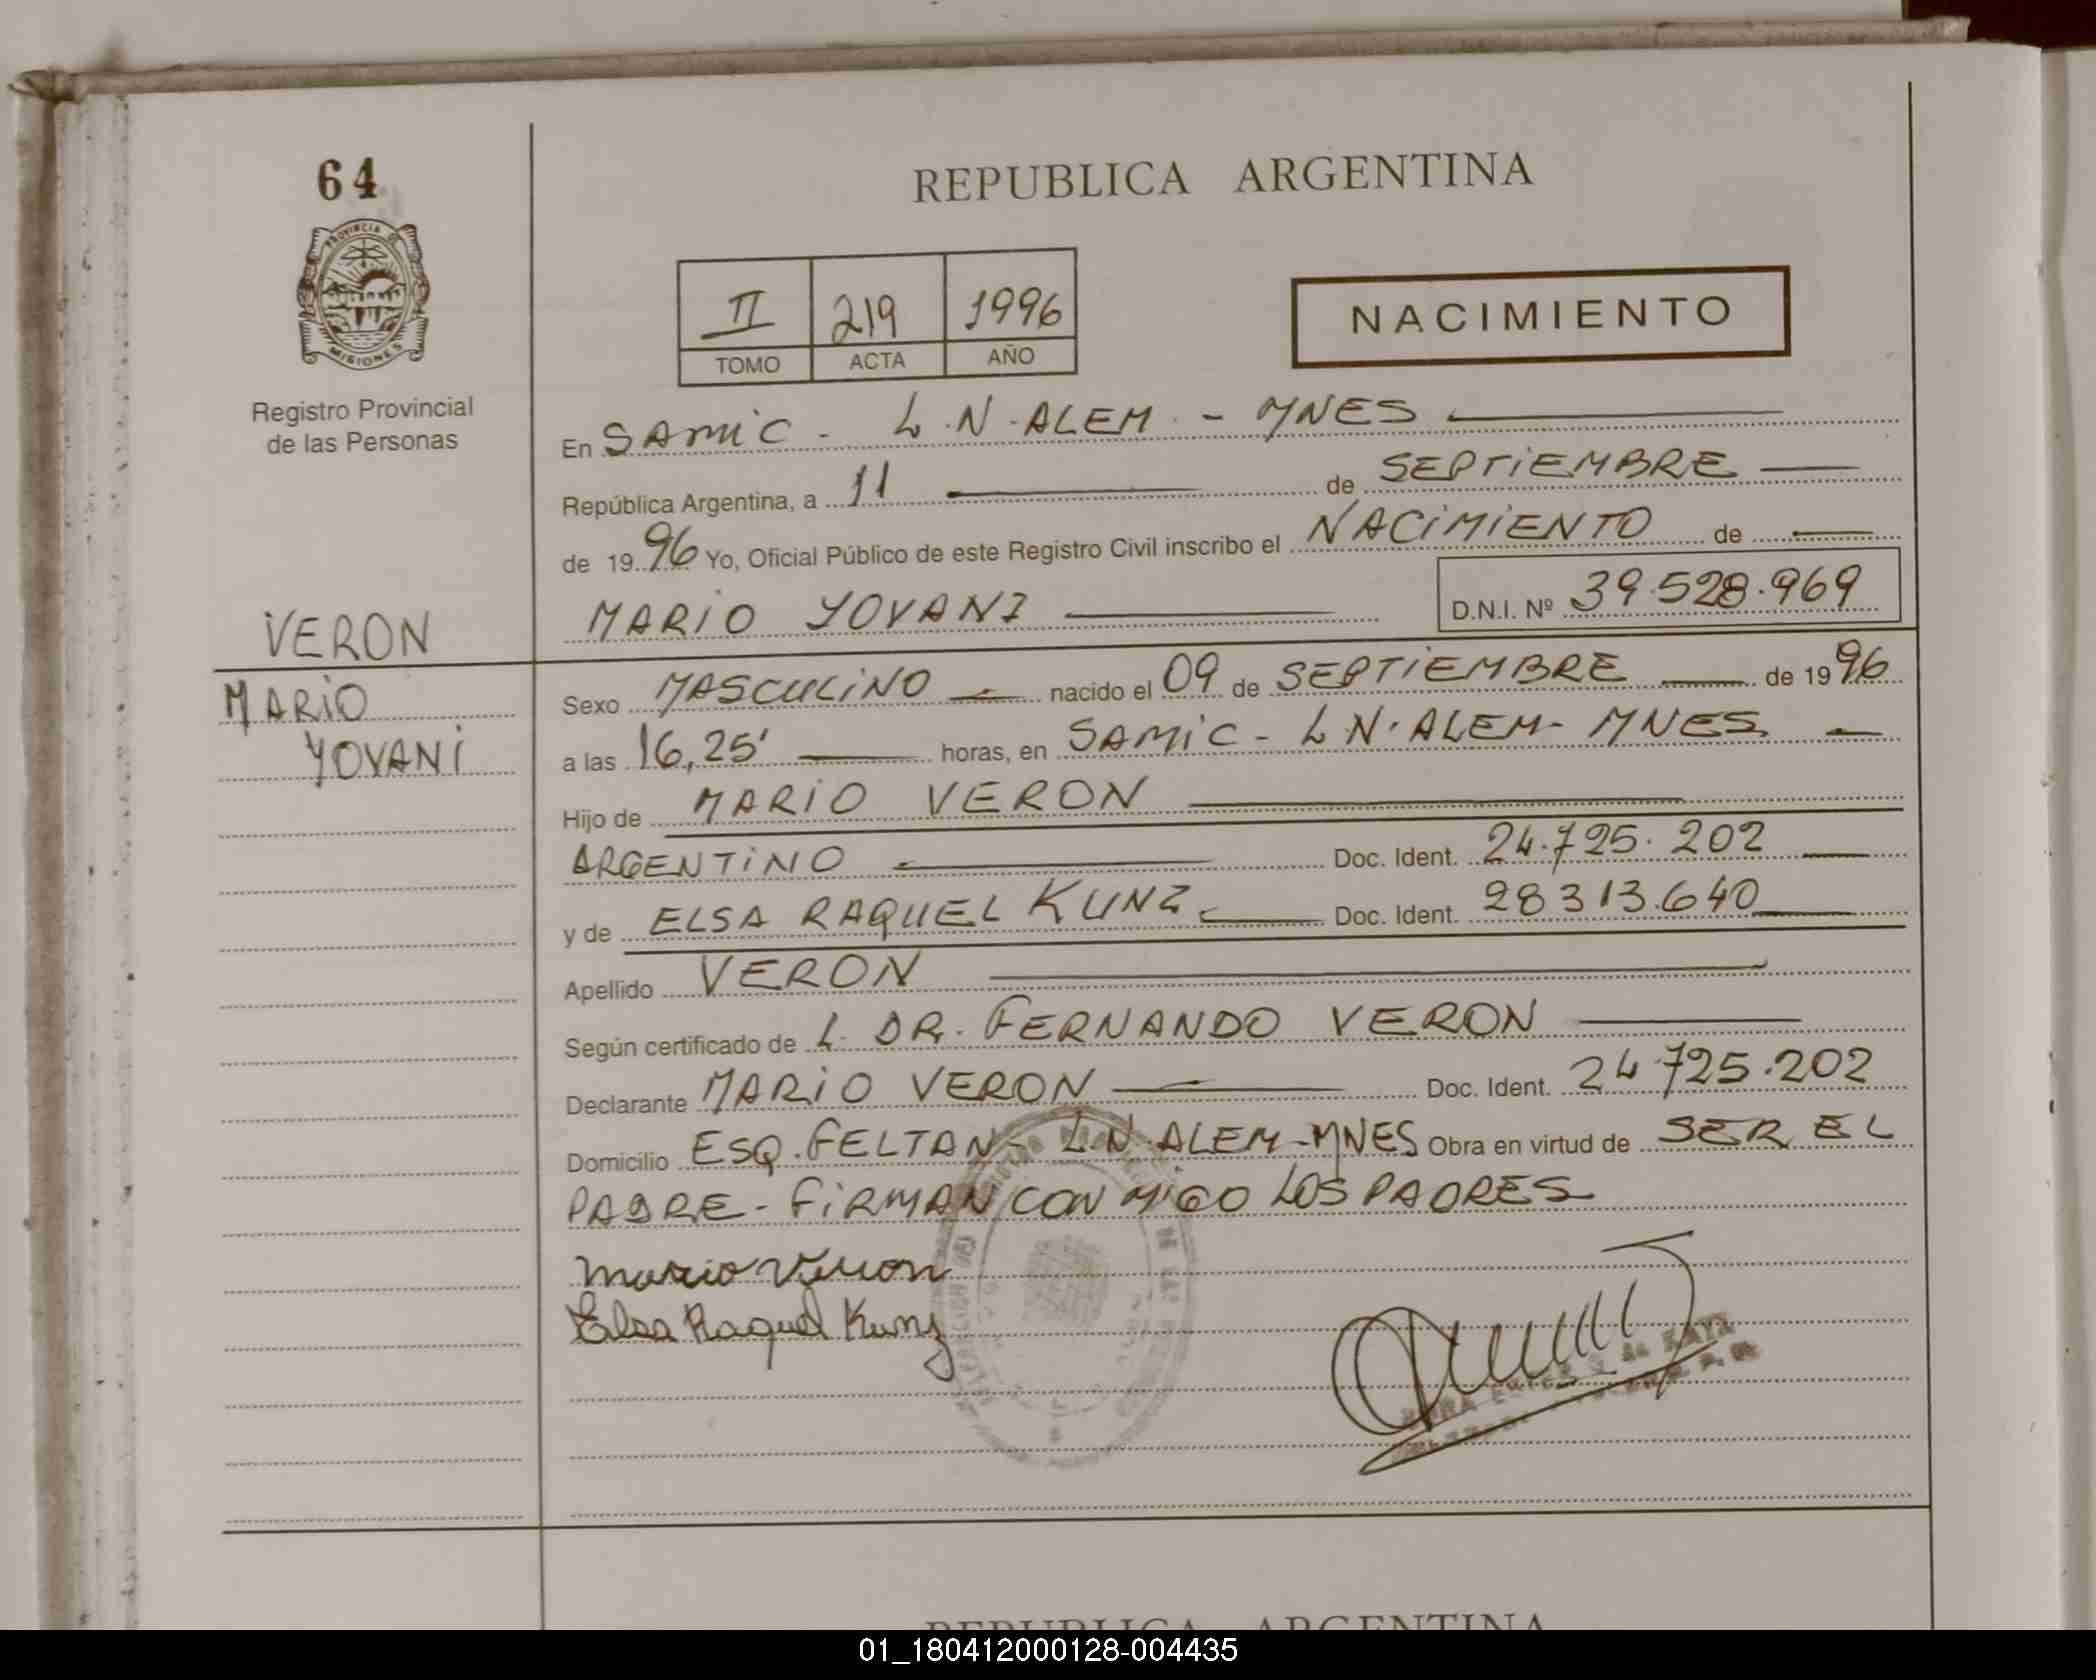 64
REPUBLICA ARGENTINA
PROVINCIA DE
MISIONES
Registro Provincial
de las Personas
II 219 1996
TOMO ACTA AÑO
NACIMIENTO
En SAMIC - L.N.ALEM - MNES
República Argentina, a 11 de SEPTIEMBRE
de 1996 Yo, Oficial Público de este Registro Civil inscribo el NACIMIENTO de
MARIO YOVANI D.N.I. Nº 39.528.969
VERON
MARIO
YOVANI
Sexo MASCULINO nacido el 09 de SEPTIEMBRE de 1996
a las 16,25' horas, en SAMIC - L N.ALEM - MNES
Hijo de MARIO VERON
ARGENTINO Doc. Ident. 24.725.202
y de ELSA RAQUEL KUNZ Doc. Ident. 28313.640
Apellido VERON
Según certificado de L. DR. FERNANDO VERON
Declarante MARIO VERON Doc. Ident. 24.725.202
Domicilio ESQ. FELTAN - L.N.ALEM-MNES Obra en virtud de SER EL
PADRE - FIRMAN CON MIGO LOS PADRES
Mario Veron
Elsa Raquel Kunz
REPUBLICA ARGENTINA
01_180412000128-004435